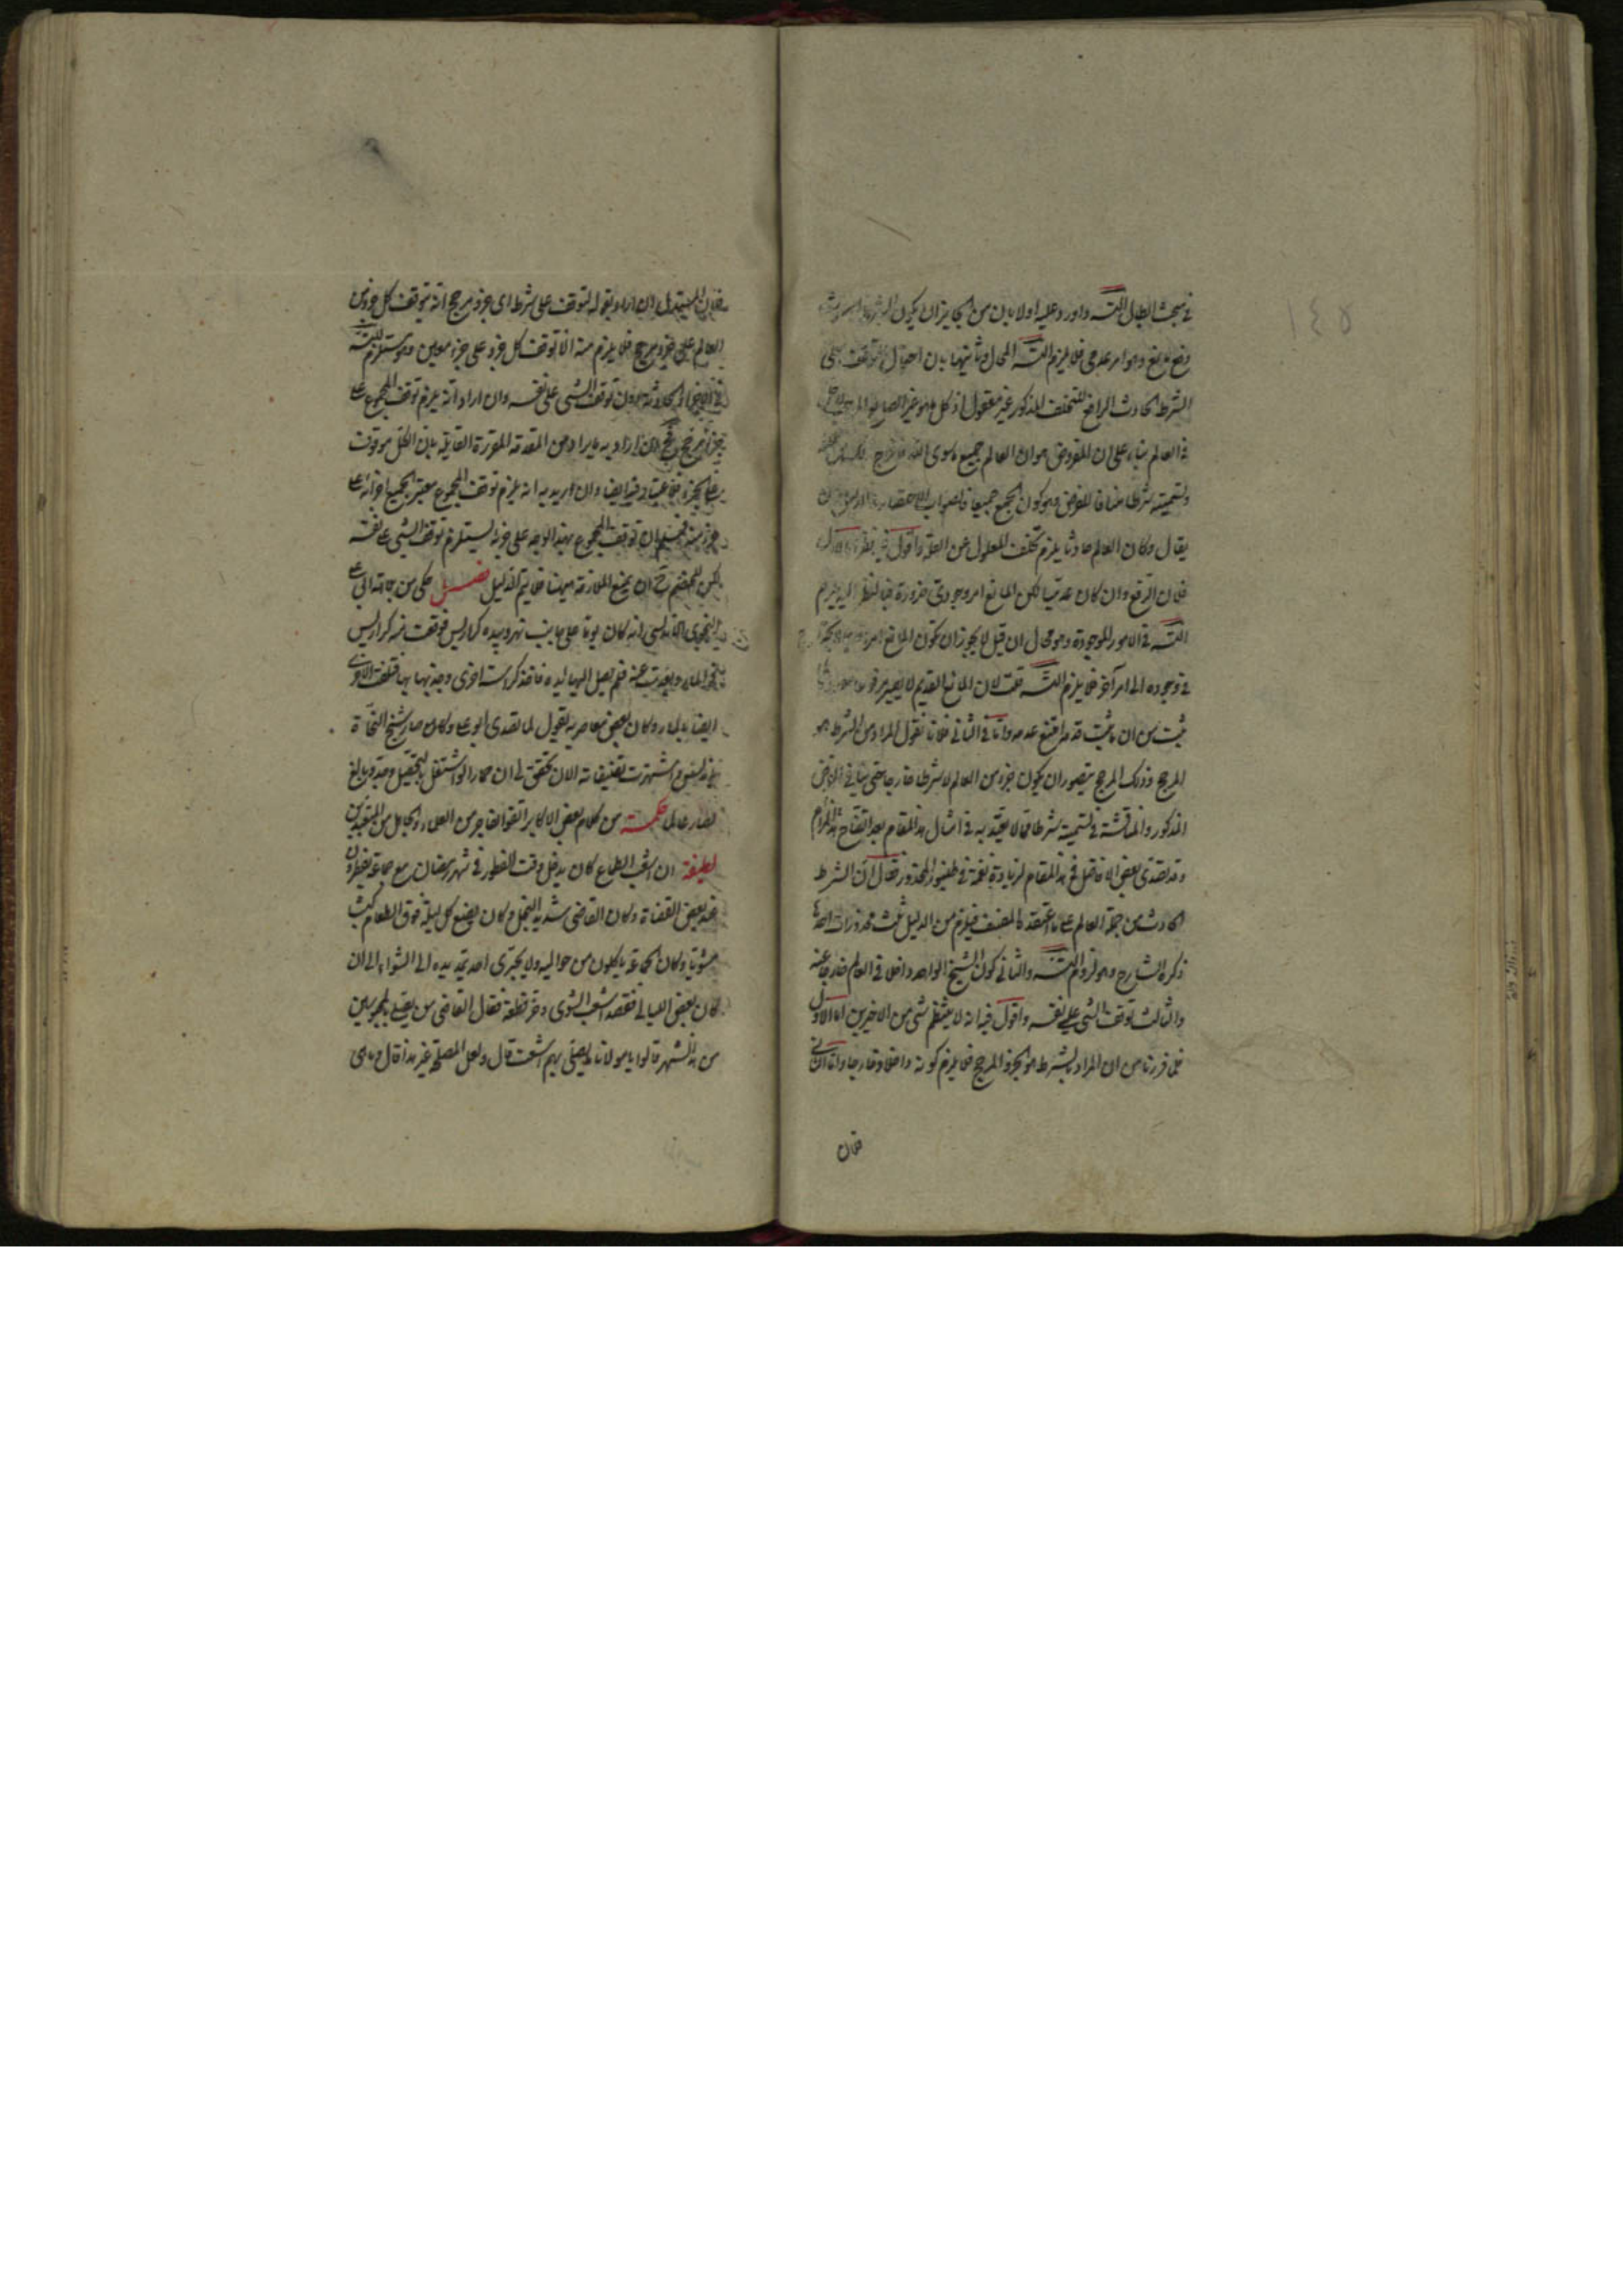 في مبحث ابطال التسـ واورد عليه اولا بان من الجايز ان يكون الشرط
رفع مانع وهو امر عدمي فلا يلزم التسـ المحال وثانيهما بان احتمال توقفه على
الشرط الحادث الرافع للتخلف المذكور غير معقول اذ كل ما هو غير الصانع
في العالم بناء على ان المفروض هو ان العالم جميع ما سوى الله
وتسميته شرطا مناف للفرض وهو كون الجميع جميعا فالصواب الاختصار
يقال لو كان العالم حادثا يلزم تخلف المعلول عن العلة واقول فيه نظر
فلان الرفع وان كان عدميا لكن المانع امر وجودي ضرورة فبالنظر اليه يلزم
التسـ في الامور الموجودة وهو محال ان قيل لا يجوز ان تكون المانع امرا
في وجوده الى امر آخر فلا يلزم التسـ قلت لان المانع القديم لا يصير مرفوعا
ثبت من ان ما ثبت قدمه امتنع عدمه واما في الثاني فلانا نقول المراد من الشرط هو
المرجح وذلك المرجح يتصور ان يكون جزء من العالم لا شرطا خارجا حتى ينافي الفرض
المذكور والمناقشة في تسميته شرطا مما لا يعتد به في امثال هذا المقام بعد اتضاح المرام
وقد تصدى بعض الافاضل في هذا المقام لزيادة نغمة في طنبور المحذور فقال ان الشرط
الحادث من جملة العالم على ما اعتقده المصنف فيلزم من الدليل ثلث محذورات احدها
ذكره الشارح وهو لزوم التسـ والثاني كون الشيخ الواحد داخلا في العالم خارجا عنه
والثالث توقف الشيء على نفسه واقول فيه انه لا ينتظم شيء من الاخيرين اما الاول
فلما قررنا من ان المراد بالشرط هو الجزء المرجح فلا يلزم كونه داخلا وخارجا واما الثاني
فلان
١٤٥
فلان المستدل ان اراد بقوله لتوقف على شرط اي جزء مرجح انه يتوقف كل جزء من
العالم على جزء مرجح فلا يلزم منه الا توقف كل جزء على جزء معين وهو مستلزم للتسـ
في الاجزاء الحادثة دون توقف الشيء على نفسه وان اراد انه يلزم توقف المجموع على
جزء مرجح فح ان اراد به ما يراد من المقدمة المقررة القايلة بان الكل موقوف
على الجزء فلا عتبار فيه ايضا وان اريد به انه يلزم توقف المجموع معتبر الجميع اجزائه على
جزء منه فمسلم ان توقف المجموع بهذا الوجه على جزئه ليستلزم توقف الشيء على نفسه
لكن للخصم ح ان يمنع الملازمة ههنا فلا يتم الدليل فضيل حكي من حالة ابي علي
النحوي الاندلسي انه كان يوما على جانب نهر وبيده كراريس فوقعت منه كراريس
في الماء وبعدت عنه فلم يصل اليها يده فاخذ كراسة اخرى وجذبها بها فتلفت الاخرى
ايضا بالماء وكان بعض معاصريه يقول لما تصدى ابو علي وكان صار شيخ النحاة
في العلوم اشتهرت تصنيفاته الان تحقق لي ان حمارا لو اشتغل بالتحصيل وجد وبالغ
لصار عالما حكمة من كلام بعض الاكابر اتقوا الفاجر من العلماء والجاهل من المتعبدين
لطيفة ان اشعب الطماع كان يدخل وقت الفطور في شهر رمضان مع جماعة يفطرون
عند بعض القضاة وكان القاضي شديد البخل وكان يضع كل ليلة فوق الطعام كبشا
مشويا وكان الجماعة ياكلون من حواليه ولا يجترى احد يمد يده الى الشواء الى ان
كان بعض الليالي فقصد اشعب الشوى وخر قطعة فقال القاضي من يصلي بالمحبوسين
من هذا الشهر قالوا يا مولانا ما يصلي بهم اشعب قال ولعل المصلحة غير هذا قال وما هي